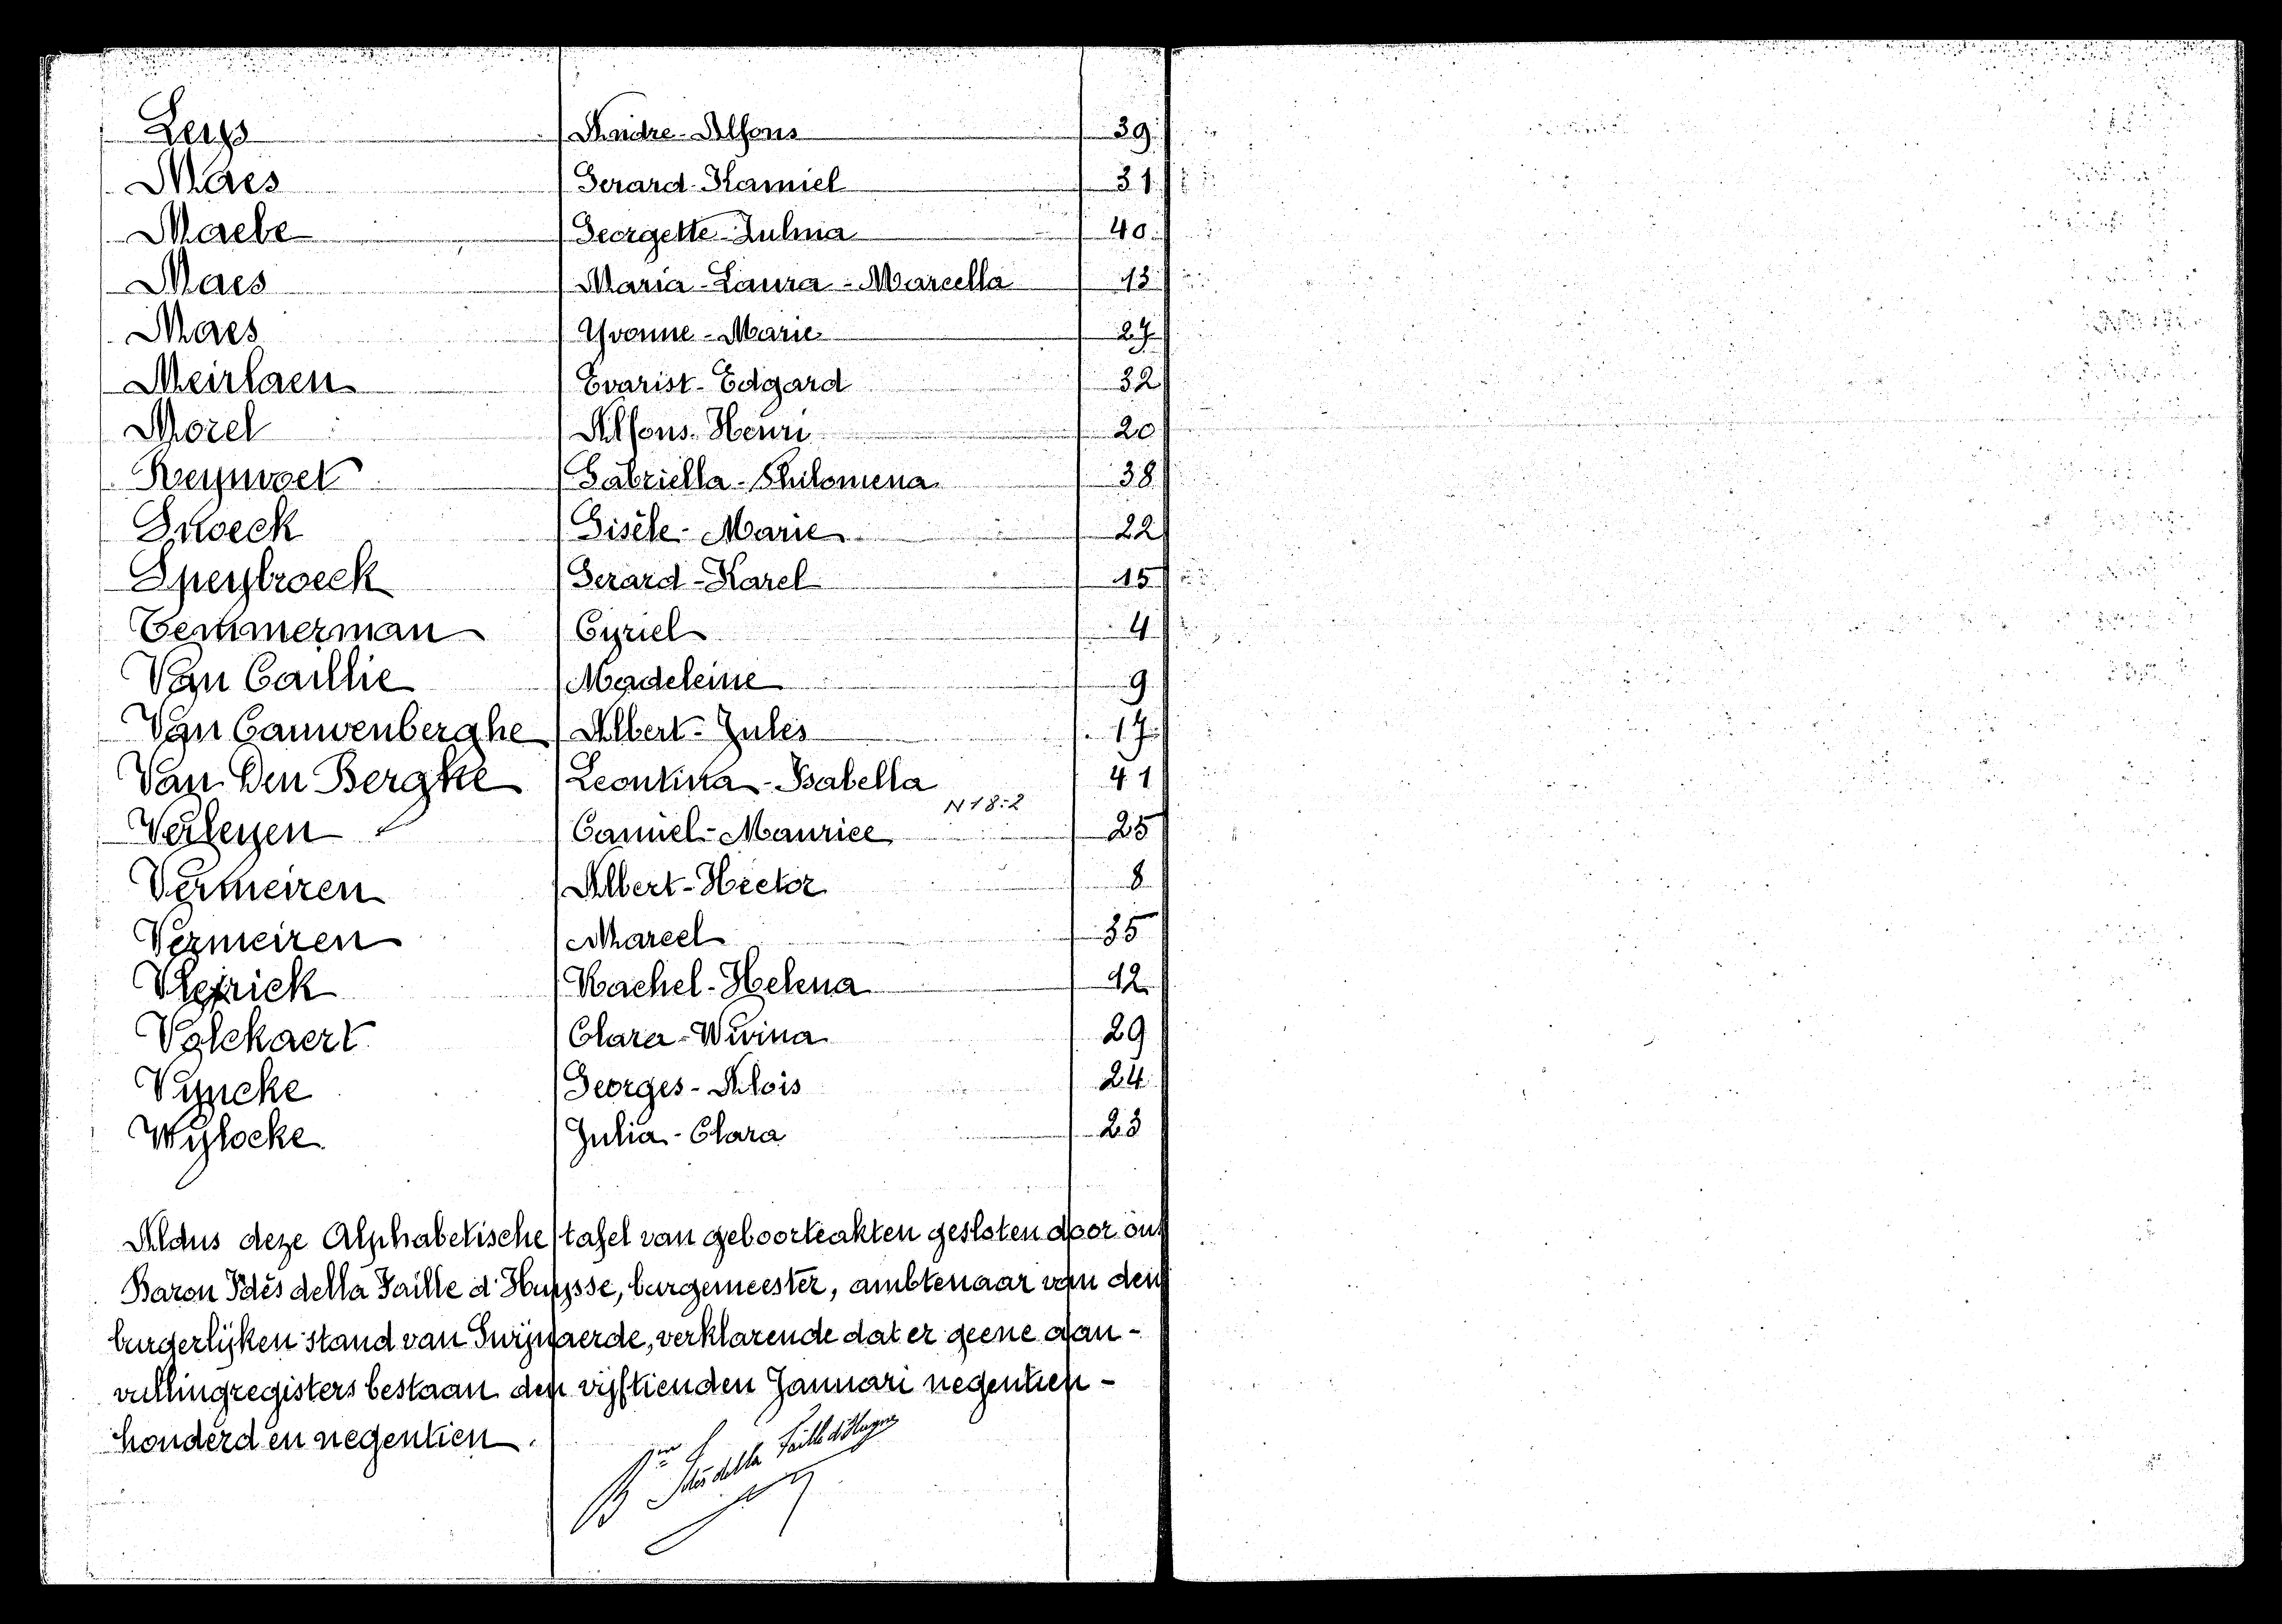 Leys Andre-Alfons 39
Maes Gerard-Kamiel 31
Maebe Georgette-Zulma 40
Maes Maria-Laura-Marcella 13
Maes Yvonne-Marie 27
Meirlaen Evarist-Edgard 32
Morel Alfons-Henri 20
Reynvoet Gabriella-Philomena 38
Snoeck Gisèle-Marie 22
Speybroeck Gerard-Karel 15
Temmerman Cyriel 4
Van Caillie Madeleine 9
Van Cauwenberghe Albert-Jules 17
Van Den Berghe Leontina-Isabella 41
N 18:2
Verleyen Camiel-Maurice 25
Vermeiren Albert-Hector 8
Vermeiren Marcel 35
Vlerick Rachel-Helena 12
Volckaert Clara-Wivina 29
Vyncke Georges-Alois 24
Wylocke Julia-Clara 23
Aldus deze Alphabetische tafel van geboorteakten gesloten door ons
Baron Idès della Faille d'Huysse, burgemeester, ambtenaar van den
burgerlijken stand van Swijnaerde, verklarende dat er geene aan-
vullingregisters bestaan den vijftienden Januari negentien-
honderd en negentien.
Bon Idès della Faille d'Huysse